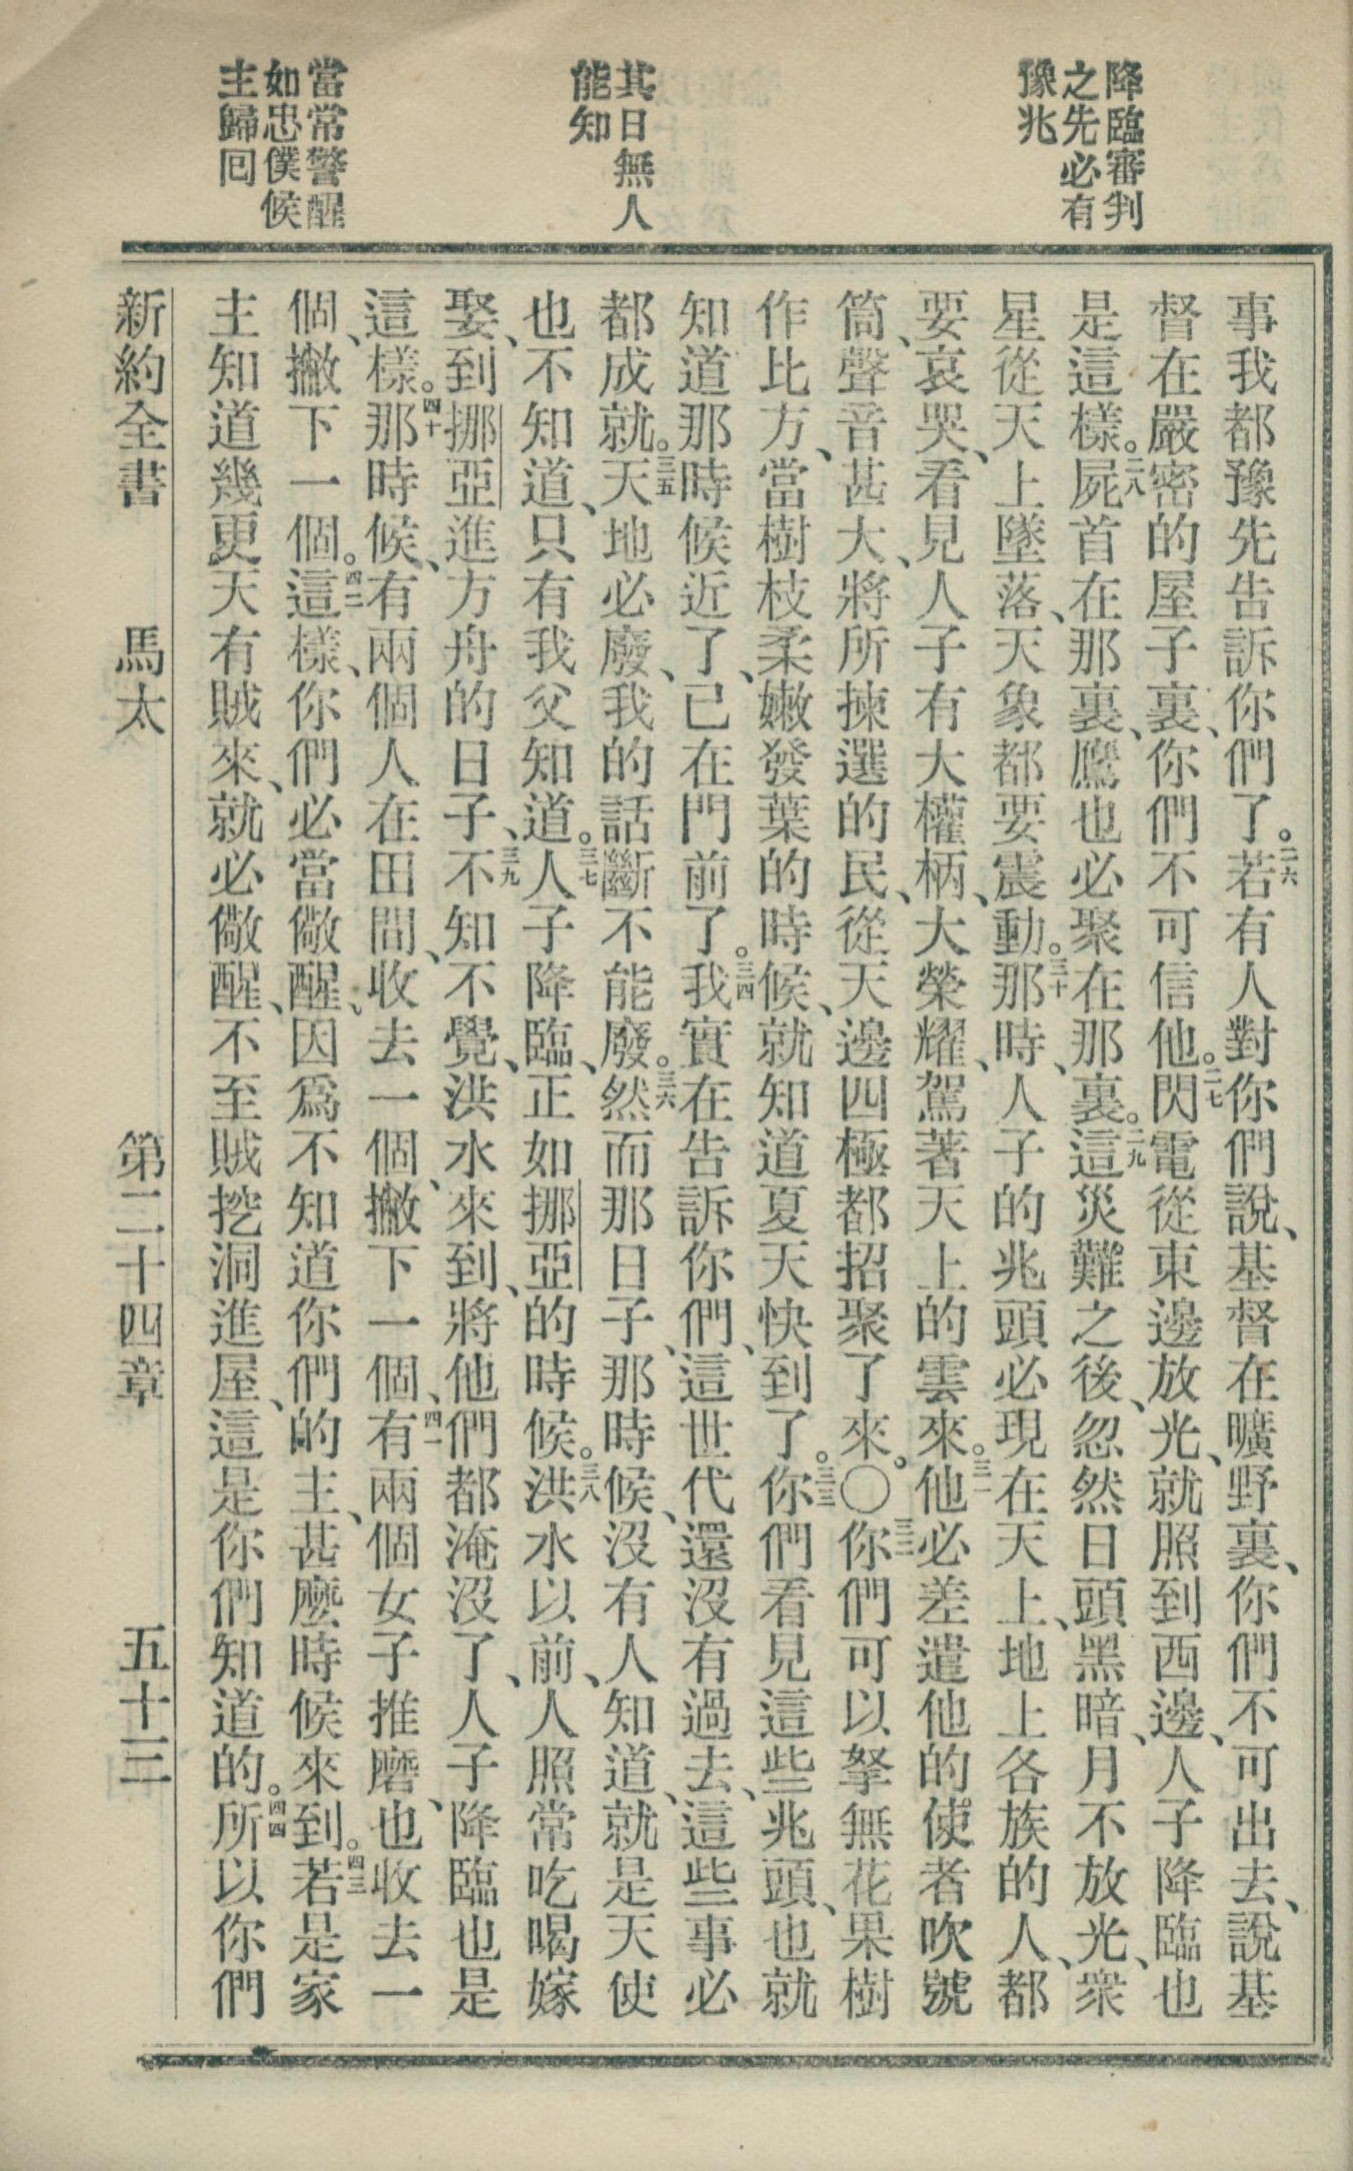 降臨審判
之先必有
豫兆
其日無人
能知
當常警醒
如忠僕候
主歸回
事我都豫先告訴你們了。二六若有人對你們說、基督在曠野裏、你們不可出去、說基
督在嚴密的屋子裏、你們不可信他。二七閃電從東邊放光、就照到西邊、人子降臨也
是這樣。二八屍首在那裏、鷹也必聚在那裏。二九這災難之後、忽然日頭黑暗、月不放光、衆
星從天上墜落、天象都要震動。三十那時、人子的兆頭必現在天上、地上各族的人、都
要哀哭、看見人子有大權柄、大榮耀、駕著天上的雲來。三一他必差遣他的使者吹號
筒、聲音甚大、將所揀選的民、從天邊四極都招聚了來。〇三二你們可以拏無花果樹
作比方、當樹枝柔嫩發葉的時候、就知道夏天快到了。三三你們看見這些兆頭、也就
知道那時候近了、已在門前了。三四我實在告訴你們、這世代還沒有過去、這些事必
都成就。三五天地必廢、我的話斷不能廢。三六然而那日子、那時候、沒有人知道、就是天使
也不知道、只有我父知道。三七人子降臨、正如挪亞的時候。三八洪水以前、人照常吃喝嫁
娶、到挪亞進方舟的日子、三九不知不覺、洪水來到、將他們都淹沒了、人子降臨也是
這樣。四十那時候、有兩個人在田間、收去一個、撇下一個、四一有兩個女子推磨、也收去一
個、撇下一個。四二這樣、你們必當儆醒、因爲不知道你們的主、甚麼時候來到。四三若是家
主知道幾更天有賊來、就必儆醒、不至賊挖洞進屋、這是你們知道的。四四所以你們
新約全書 馬太 第二十四章 五十三